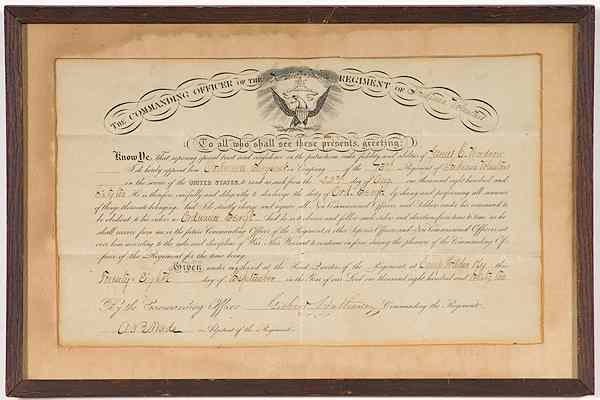 THE COMMANDING OFFICER OF THE Seventy Third REGIMENT OF Indiana Volunteers
To all who shall see these presents, greeting:
Know Ye, that reposing special trust and confidence in the patriotism, valor, fidelity and abilities of James C. Woodrow
I do hereby appoint him Ordnance Sergeant in Company of the 73rd Regiment of Indiana Volunteers
in the service of the UNITED STATES, to rank as such from the day of one thousand eight hundred and
Sixty two He is therefore carefully and diligently to discharge the duty of Ord. Serg't by doing and performing all manner
of things thereunto belonging. And I do strictly charge and require all Non-Commissioned Officers and Soldiers under his command to
be obedient to his orders as Ordnance Serg't And he is to observe and follow such orders and directions from time to time, as he
shall receive from me or the future Commanding Officer of the Regiment, or other Superior Officers and Non-Commissioned Officers set
over him, according to the rules and discipline of War. This Warrant to continue in force during the pleasure of the Commanding Of-
ficer of the Regiment for the time being.
Given under my hand at the Head Quarters of the Regiment, at Camp Ky. this
Twenty Eighth day of September in the Year of our Lord one thousand eight hundred and Sixty two
By the Commanding Officer Gilbert Hathaway Commanding the Regiment.
A. B. Wade Adjutant of the Regiment.